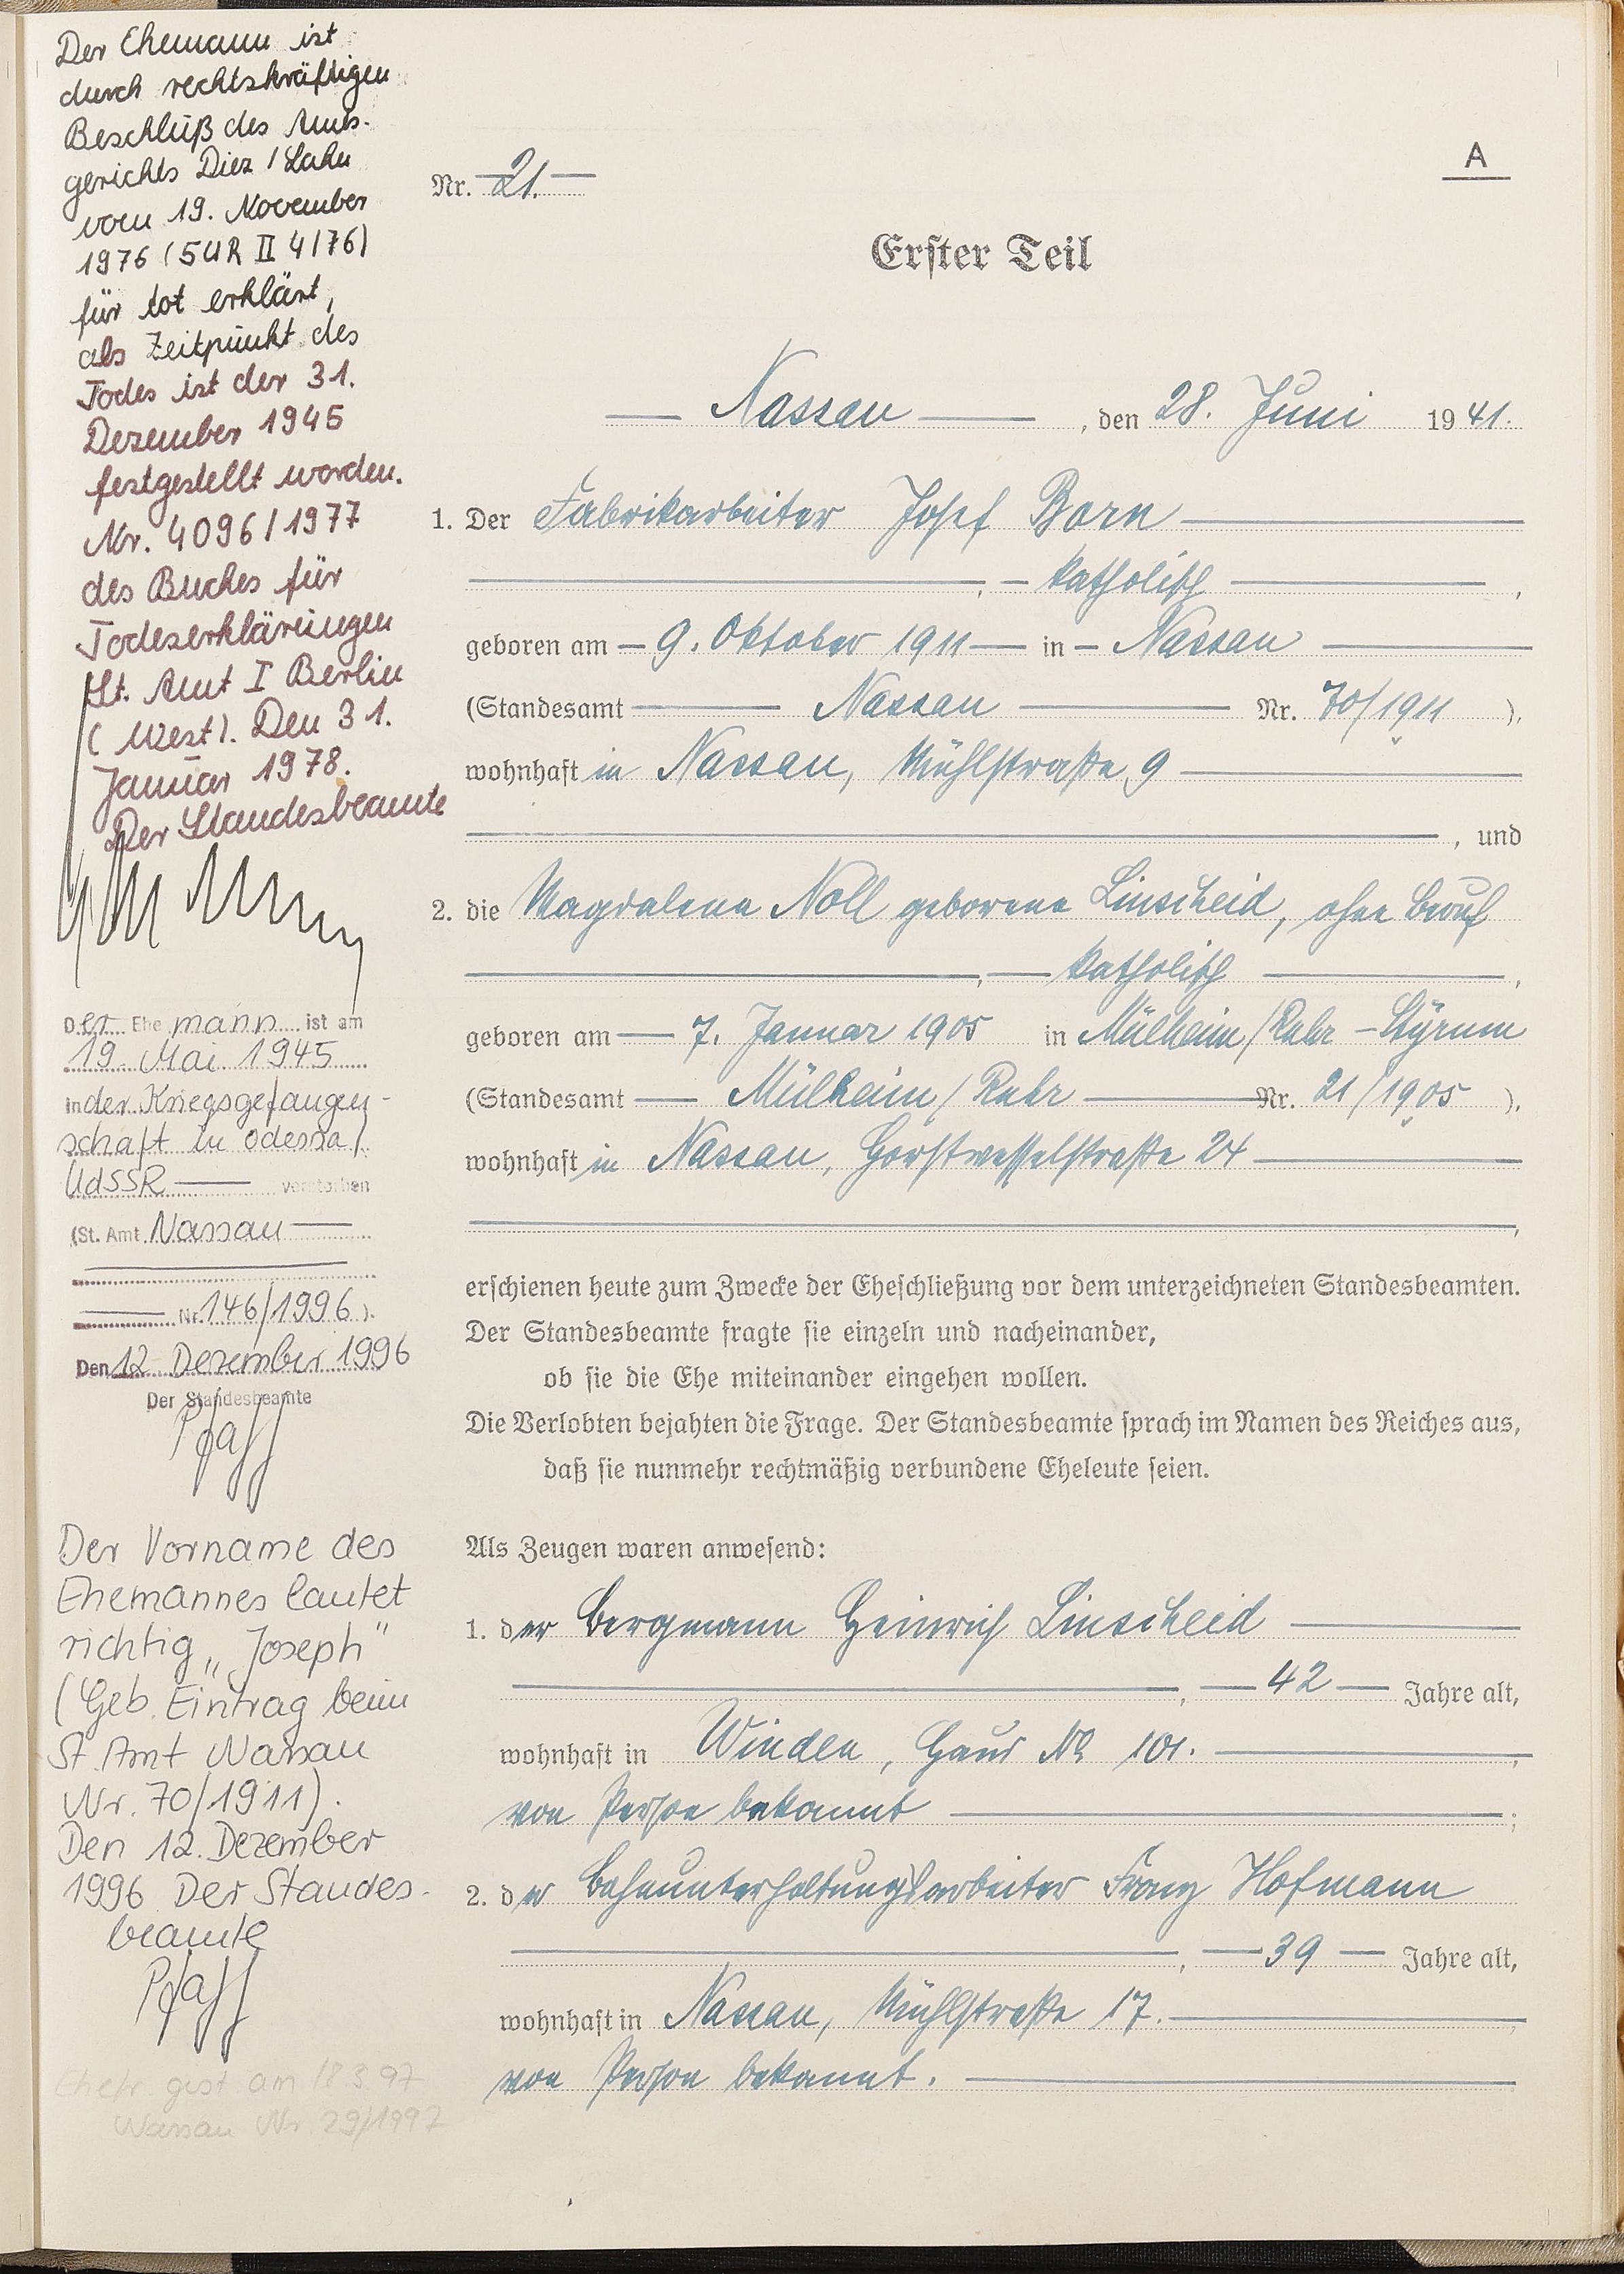 Der Ehemann ist
durch rechtskräftigen
Beschluß des Amts-
gerichts Diez / Lahn
vom 19. November
1976 (5 UR II 4/76)
für tot erklärt,
als Zeitpunkt des
Todes ist der 31.
Dezember 1945
festgestellt worden.
Nr. 4096/1977
des Buches für
Todeserklärungen
St. Amt I Berlin
(West). Den 31.
Januar 1978.
Der Standesbeamte
Der Ehemann ist am
19. Mai 1945
in der Kriegsgefangen-
schaft in Odessa/
UdSSR verstorben
(St. Amt Nassau
Nr. 146/1996).
Den 12. Dezember 1996
Der Standesbeamte
Pfaff
Der Vorname des
Ehemannes lautet
richtig „Joseph"
(Geb. Eintrag beim
St. Amt Nassau
Nr. 70/1911).
Den 12. Dezember
1996 Der Standes-
beamte
Pfaff
Ehefr. gest. am 18.3.97
Nassau Nr. 29/1997
A
Nr. 21.
Erster Teil
Nassau, den 28. Juni 1941.
1. Der Fabrikarbeiter Josef Born
, katholisch,
geboren am 9. Oktober 1911 in Nassau
(Standesamt Nassau Nr. 70/1911),
wohnhaft in Nassau, Mühlstraße 9
, und
2. die Magdalena Noll geborene Linscheid, ohne Beruf
, katholisch,
geboren am 7. Januar 1905 in Mülheim/Ruhr-Styrum
(Standesamt Mülheim/Ruhr Nr. 21/1905),
wohnhaft in Nassau, Horstwesselstraße 24
,
erschienen heute zum Zwecke der Eheschließung vor dem unterzeichneten Standesbeamten.
Der Standesbeamte fragte sie einzeln und nacheinander,
ob sie die Ehe miteinander eingehen wollen.
Die Verlobten bejahten die Frage. Der Standesbeamte sprach im Namen des Reiches aus,
daß sie nunmehr rechtmäßig verbundene Eheleute seien.
Als Zeugen waren anwesend:
1. der Bergmann Heinrich Linscheid
, 42 Jahre alt,
wohnhaft in Winden, Haus No 101.,
von Person bekannt;
2. der Bahnunterhaltungsarbeiter Franz Hofmann
, 39 Jahre alt,
wohnhaft in Nassau, Mühlstraße 17.,
von Person bekannt.